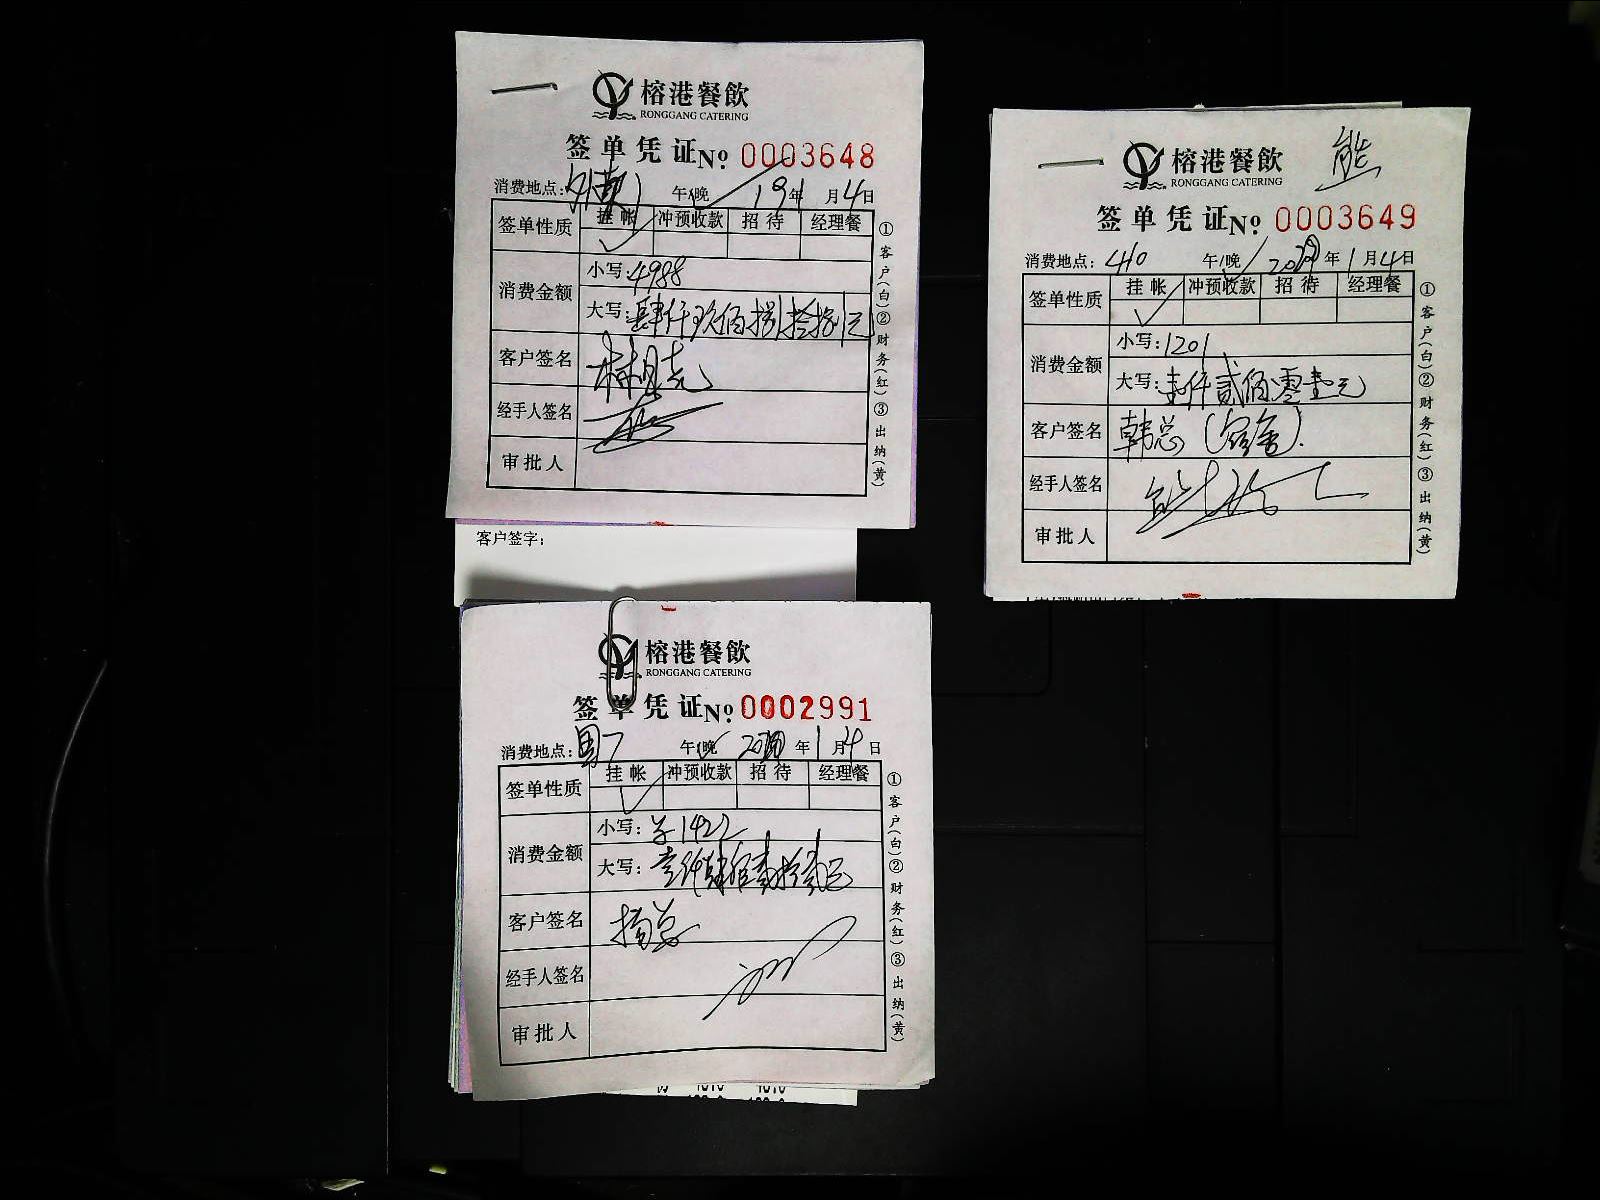 榕港餐飲
RONGGANG CATERING
签单凭证 No. 0003648
消费地点: 午/晚 19年1月4日
签单性质 挂帐 冲预收款 招待 经理餐
消费金额 小写: 4988
大写: 肆仟玖佰捌拾捌元
客户签名
经手人签名
审批人
①客户(白)②财务(红)③出纳(黄)
客户签字:
榕港餐飲
RONGGANG CATERING
熊
签单凭证 No. 0003649
消费地点: 410 午/晚 2019年1月4日
签单性质 挂帐 冲预收款 招待 经理餐
消费金额 小写: 1201
大写: 壹仟贰佰零壹元
客户签名 韩总(宿舍).
经手人签名
审批人
①客户(白)②财务(红)③出纳(黄)
榕港餐飲
RONGGANG CATERING
签单凭证 No. 0002991
消费地点: 午/晚 年1月4日
签单性质 挂帐 冲预收款 招待 经理餐
消费金额 小写: 1422
大写:
客户签名
经手人签名
审批人
①客户(白)②财务(红)③出纳(黄)